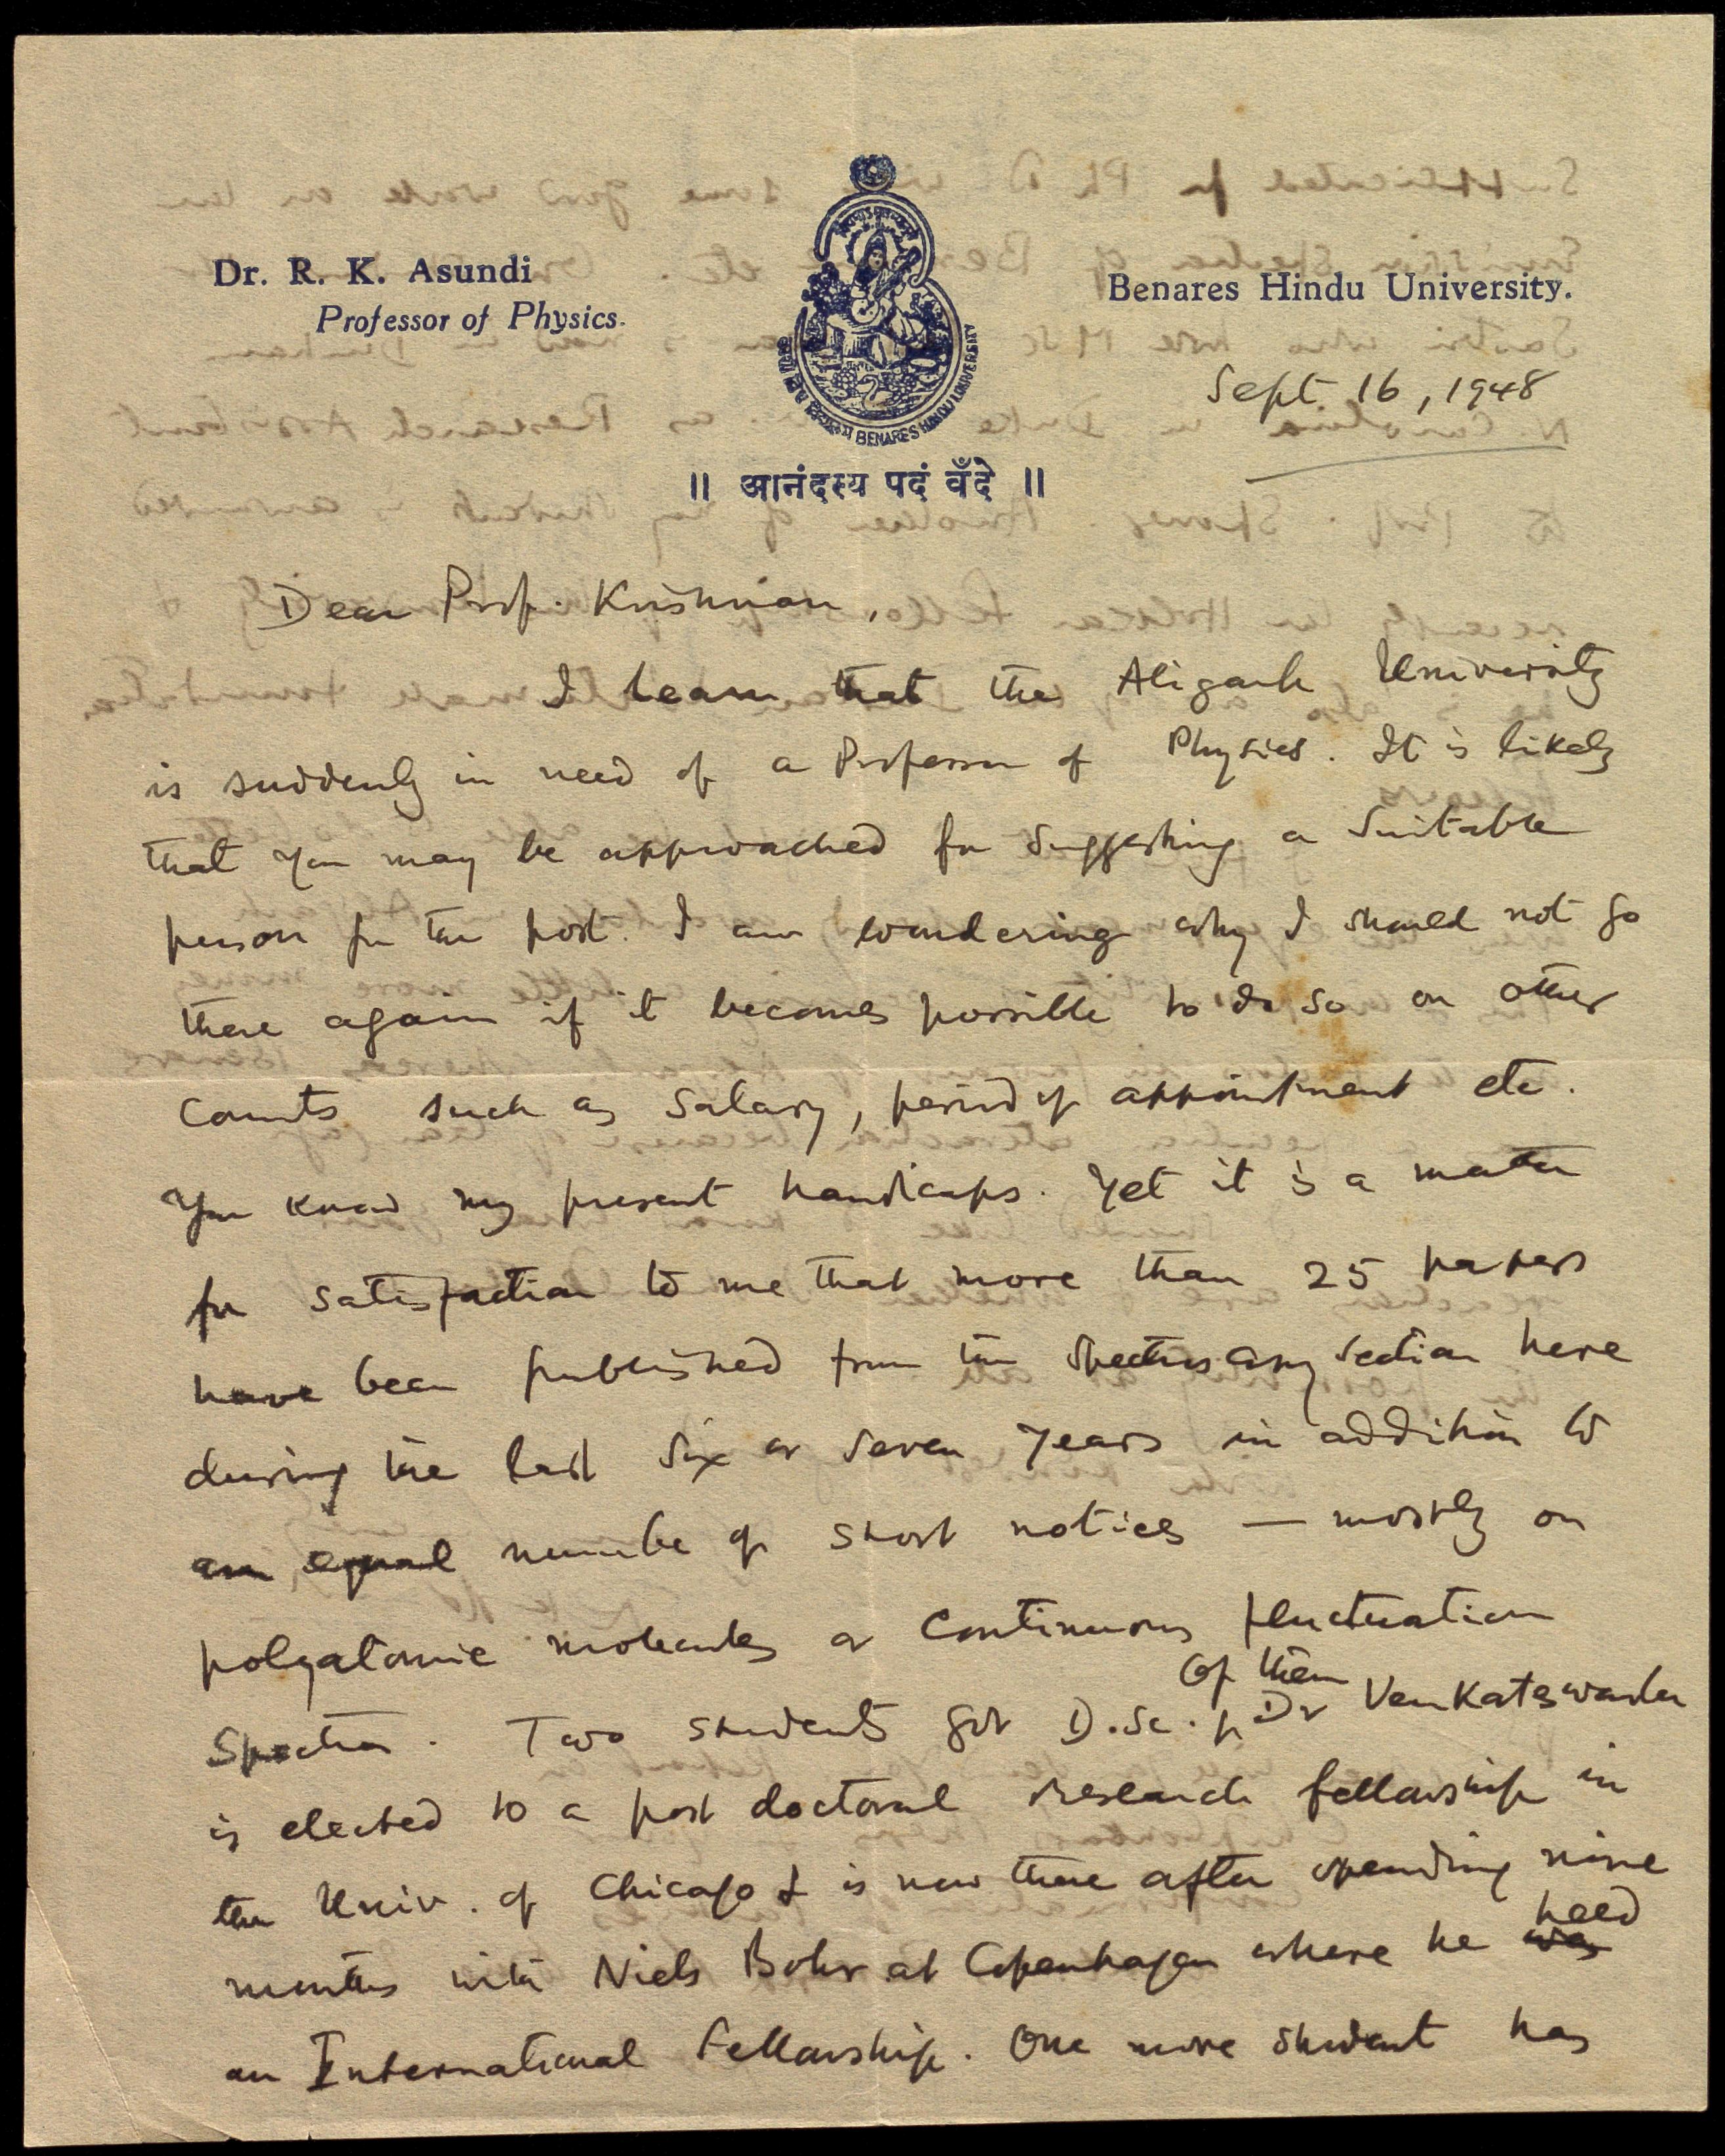 Dr. R. K. Asundi
Professor of Physics.
Benares Hindu University.
BENARES HINDU UNIVERSITY
Sept 16, 1948
॥ आनंदस्य पदं वँदे ॥
Dear Prof. Krishnan,
I learn that the Aligarh University
is suddenly in need of a Professor of Physics. It is likely
that you may be approached for suggesting a suitable
person for the post. I am wondering why I should not go
there again if it becomes possible to do so on other
counts such as salary, period of appointment etc.
You know my present handicaps. Yet it is a matter
for satisfaction to me that more than 25 papers
have been published from the spectroscopy section here
during the last six or seven years in addition to
an equal number of short notices — mostly on
polyatomic molecules or continuous fluctuation
Spectra. Two students got D.Sc. Of them Dr Venkateswarlu
is elected to a post doctoral research fellowship in
the Univ. of Chicago & is now there after spending nine
months with Niels Bohr at Copenhagen where he was held
an International Fellowship. One more student has